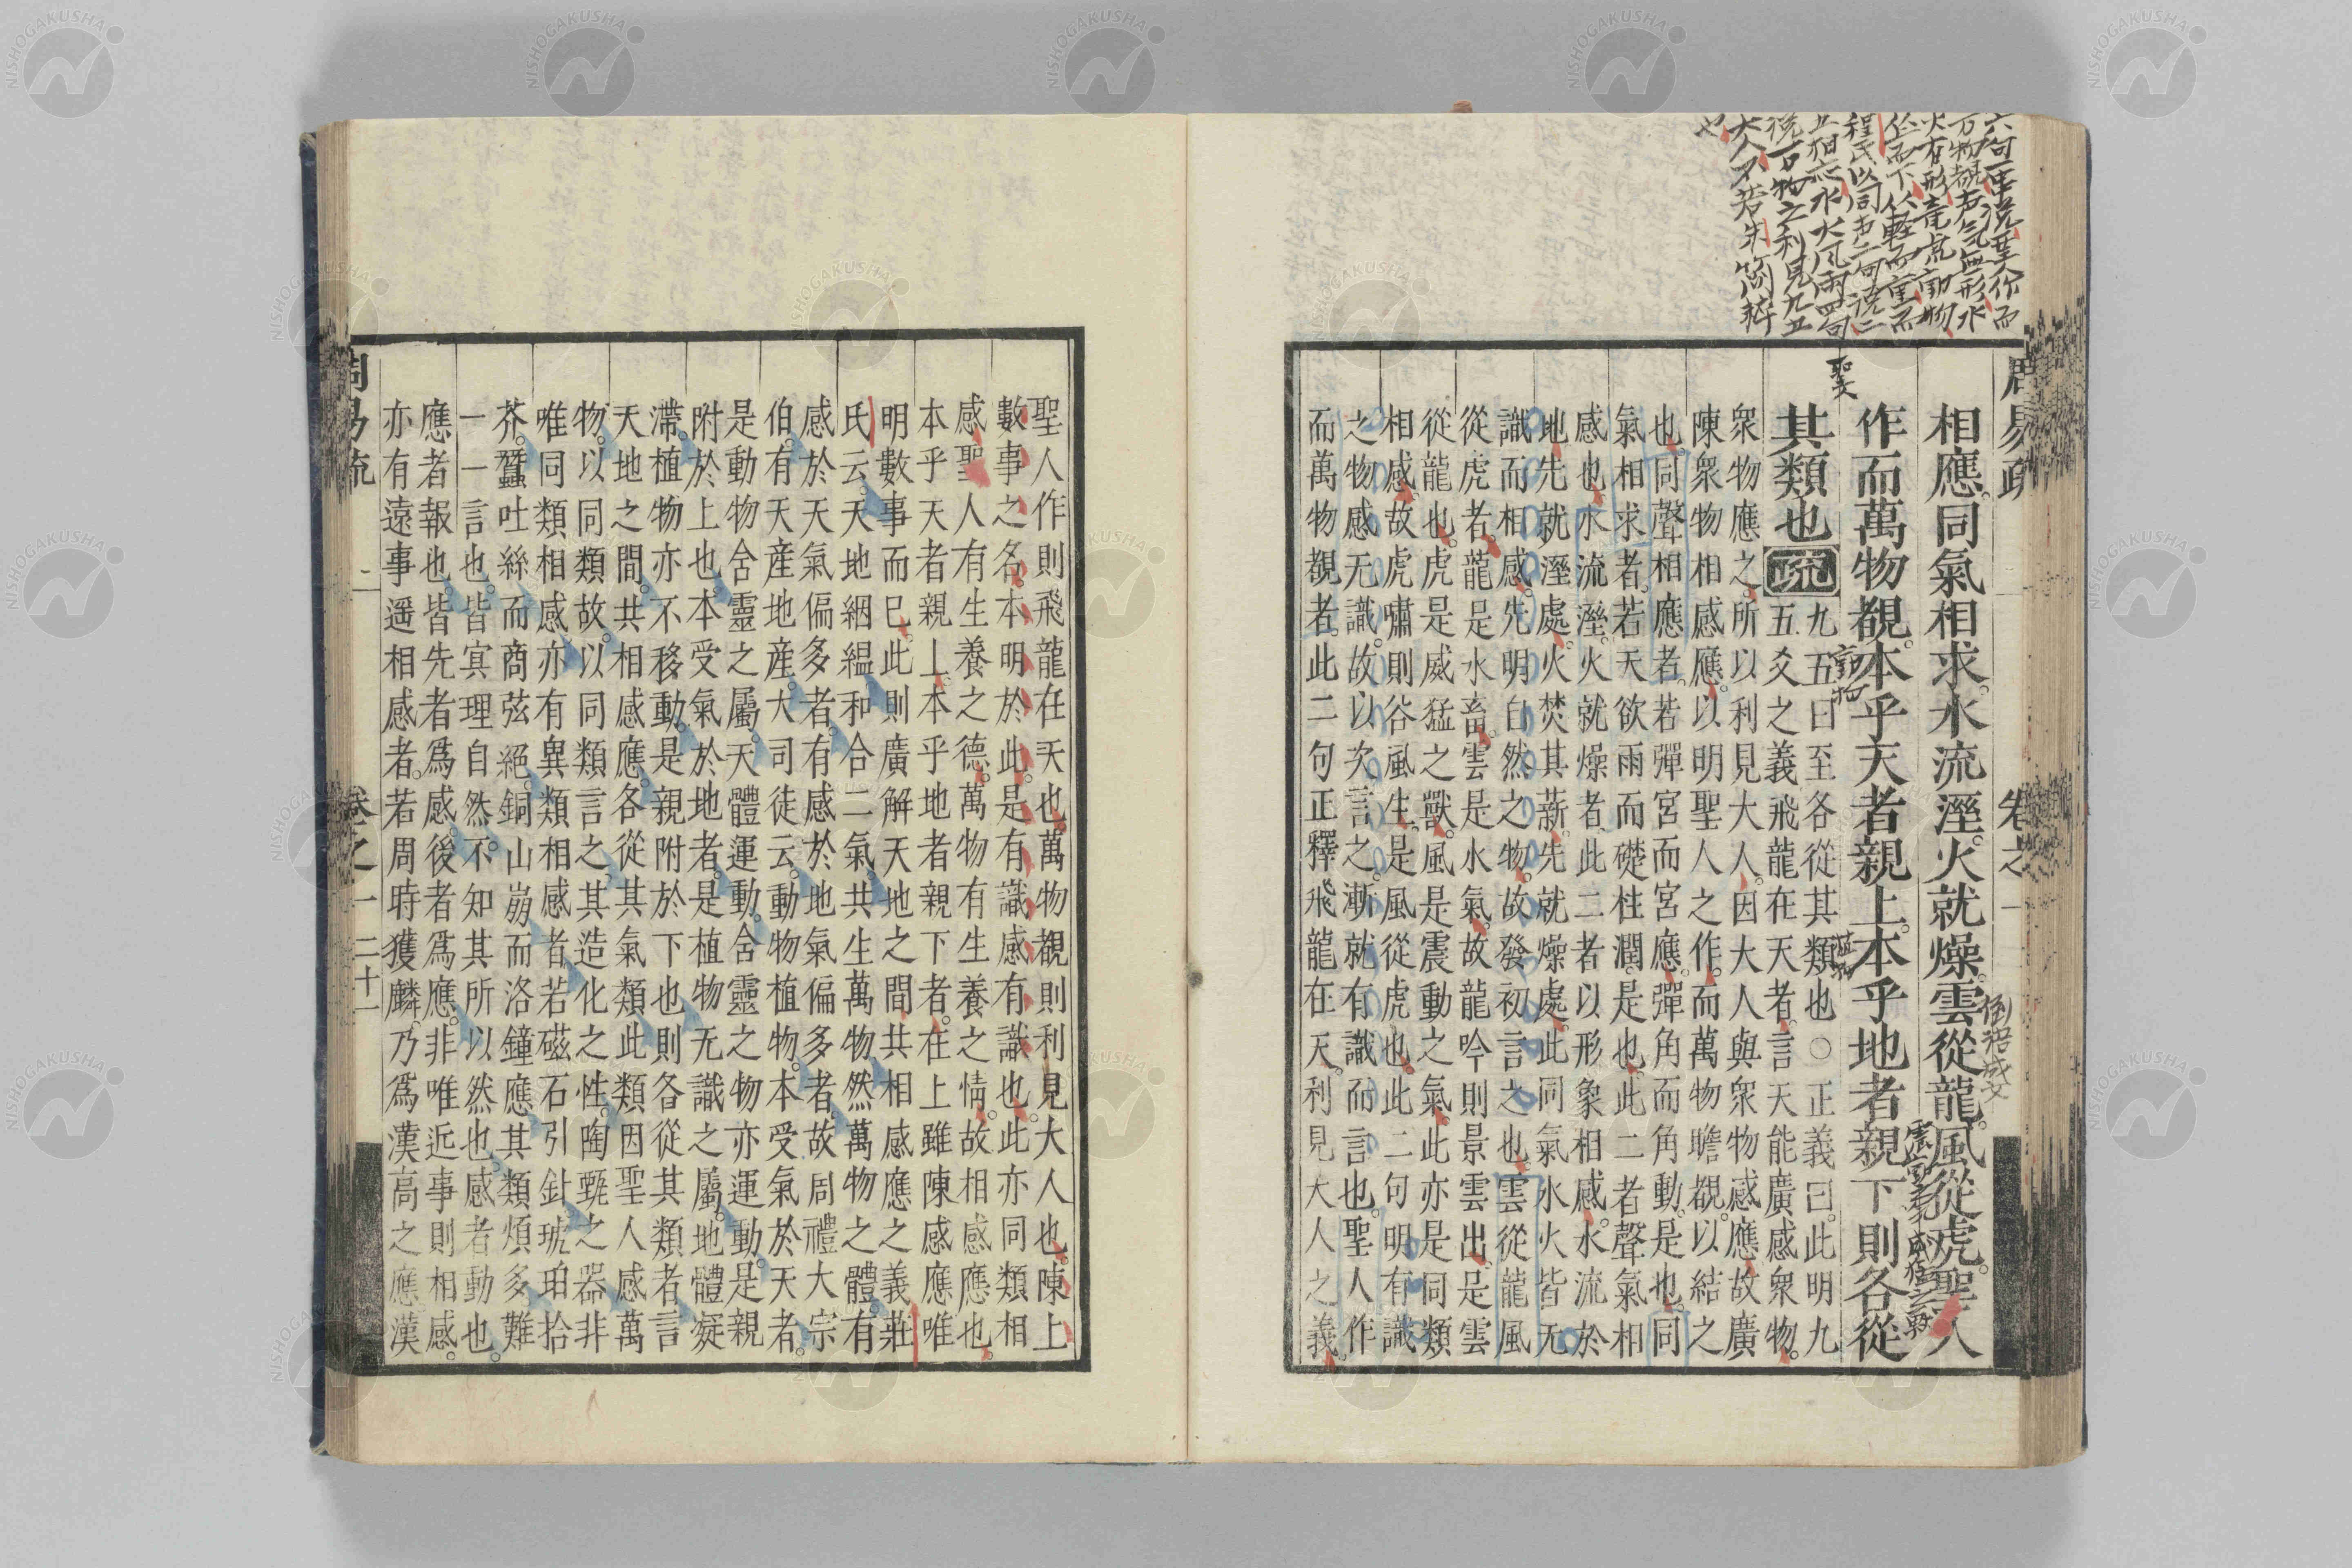 相應。同氣相求。水流溼。火就燥。雲從龍。風從虎。聖人
作而萬物覩。本乎天者親上。本乎地者親下則各從
其類也疏
九五曰至各從其類也○正義曰。此明九
五爻之義飛龍在天者。言天能廣感衆物。
衆物應之。所以利見大人。因大人與衆物感應。故廣
陳衆物相感應。以明聖人之作。而萬物瞻覩。以結之
也。同聲相應者。若彈宮而宮應。彈角而角動。是也。同
氣相求者。若天欲雨而礎柱潤。是也。此二者聲氣相
感也。水流溼。火就燥者。此二者以形象相感。水流於
地。先就溼處。火焚其薪。先就燥處。此同氣水火皆无
識而相感。先明自然之物。故發初言之也。雲從龍風
從虎者。龍是水畜。雲是水氣。故龍吟則景雲出。是雲
從龍也。虎是威猛之獸。風是震動之氣。此亦是同類
相感。故虎嘯則谷風生。是風從虎也。此二句明有識
之物感无識。故以次言之。漸就有識而言也。聖人作
而萬物覩者。此二句正釋飛龍在天。利見大人之義。
周易疏 卷之一
聖人作則飛龍在天也。萬物覩則利見大人也。陳上
數事之名。本明於此。是有識感有識也。此亦同類相
感。聖人有生養之德。萬物有生養之情。故相感應也。
本乎天者親上。本乎地者親下者。在上雖陳感應。唯
明數事而已。此則廣解天地之間共相感應之義。莊
氏云。天地絪縕和合二氣。共生萬物。然萬物之體。有
感於天氣偏多者。有感於地氣偏多者。故周禮大宗
伯。有天産地産。大司徒云。動物植物。本受氣於天者。
是動物含靈之屬。天體運動。含靈之物亦運動。是親
附於上也。本受氣於地者。是植物无識之屬。地體凝
滯。植物亦不移動。是親附於下也。則各從其類者。言
天地之間。共相感應。各從其氣類。此類因聖人感萬
物。以同類故。以同類言之。其造化之性。陶甄之器。非
唯同類相感。亦有異類相感者。若磁石引針。琥珀拾
芥。蠶吐絲而商弦絶。銅山崩而洛鐘應。其類煩多。難
一一言也。皆冥理自然。不知其所以然也。感者動也。
應者報也。皆先者爲感。後者爲應。非唯近事則相感。
亦有遠事遥相感者。若周時獲麟。乃爲漢高之應。漢
周易疏 卷之一 二十一
動物
植物